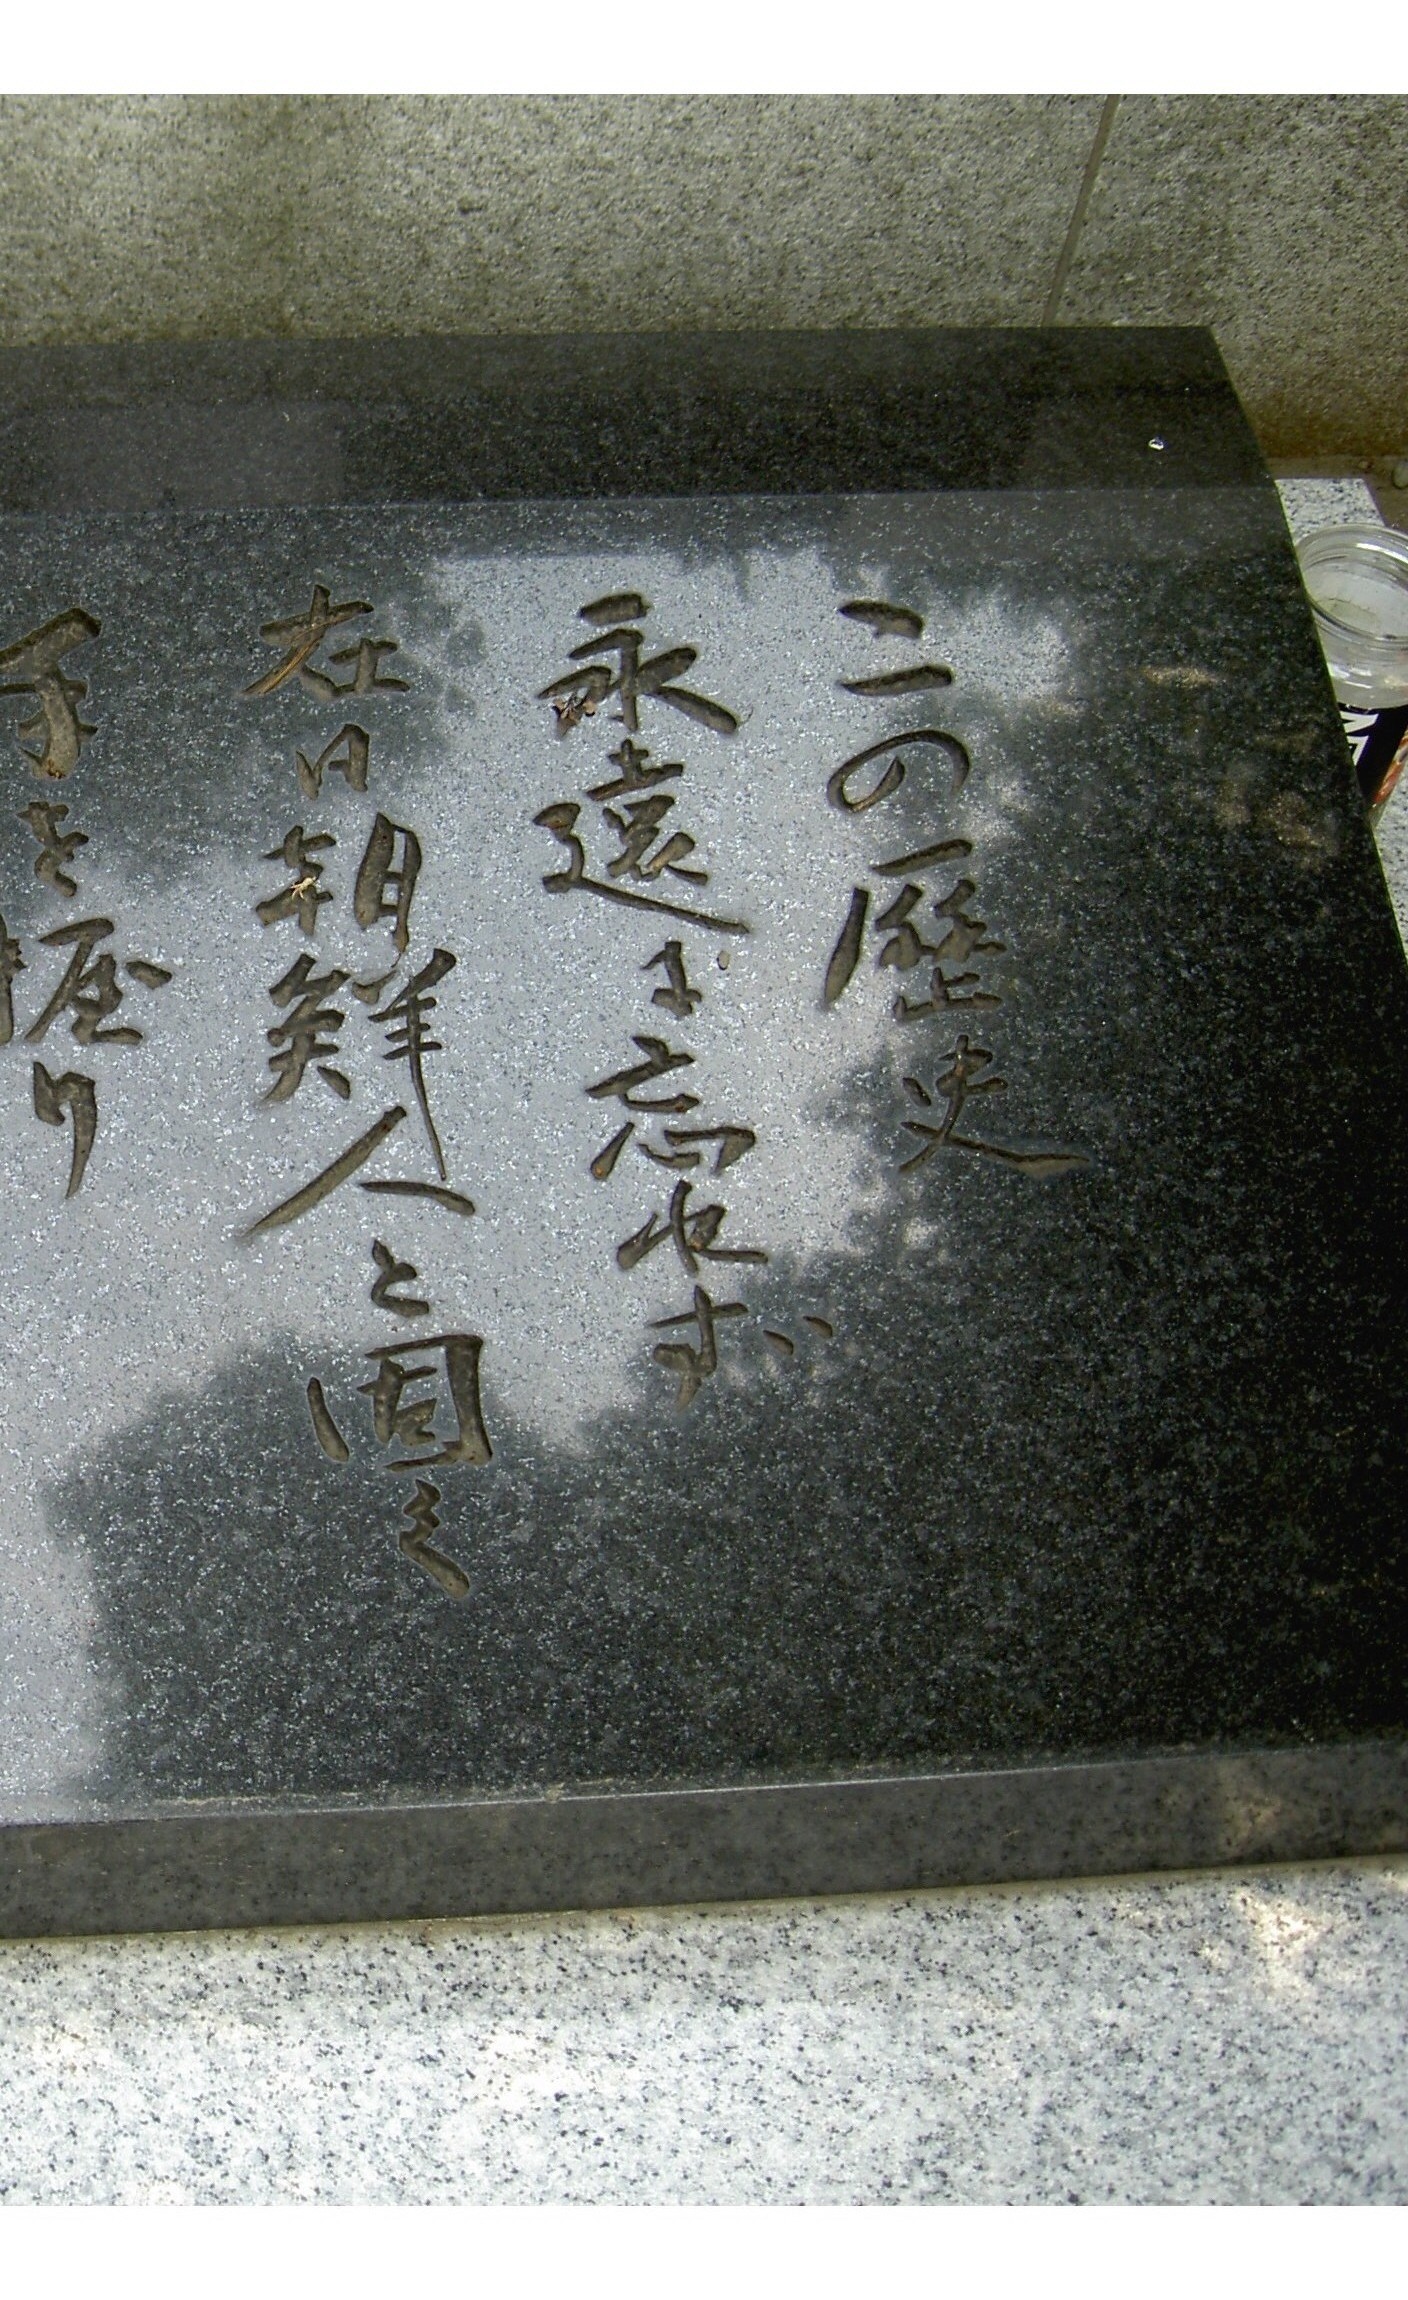 この歴史
永遠に忘れず
在日朝鮮人と固く
手を握り